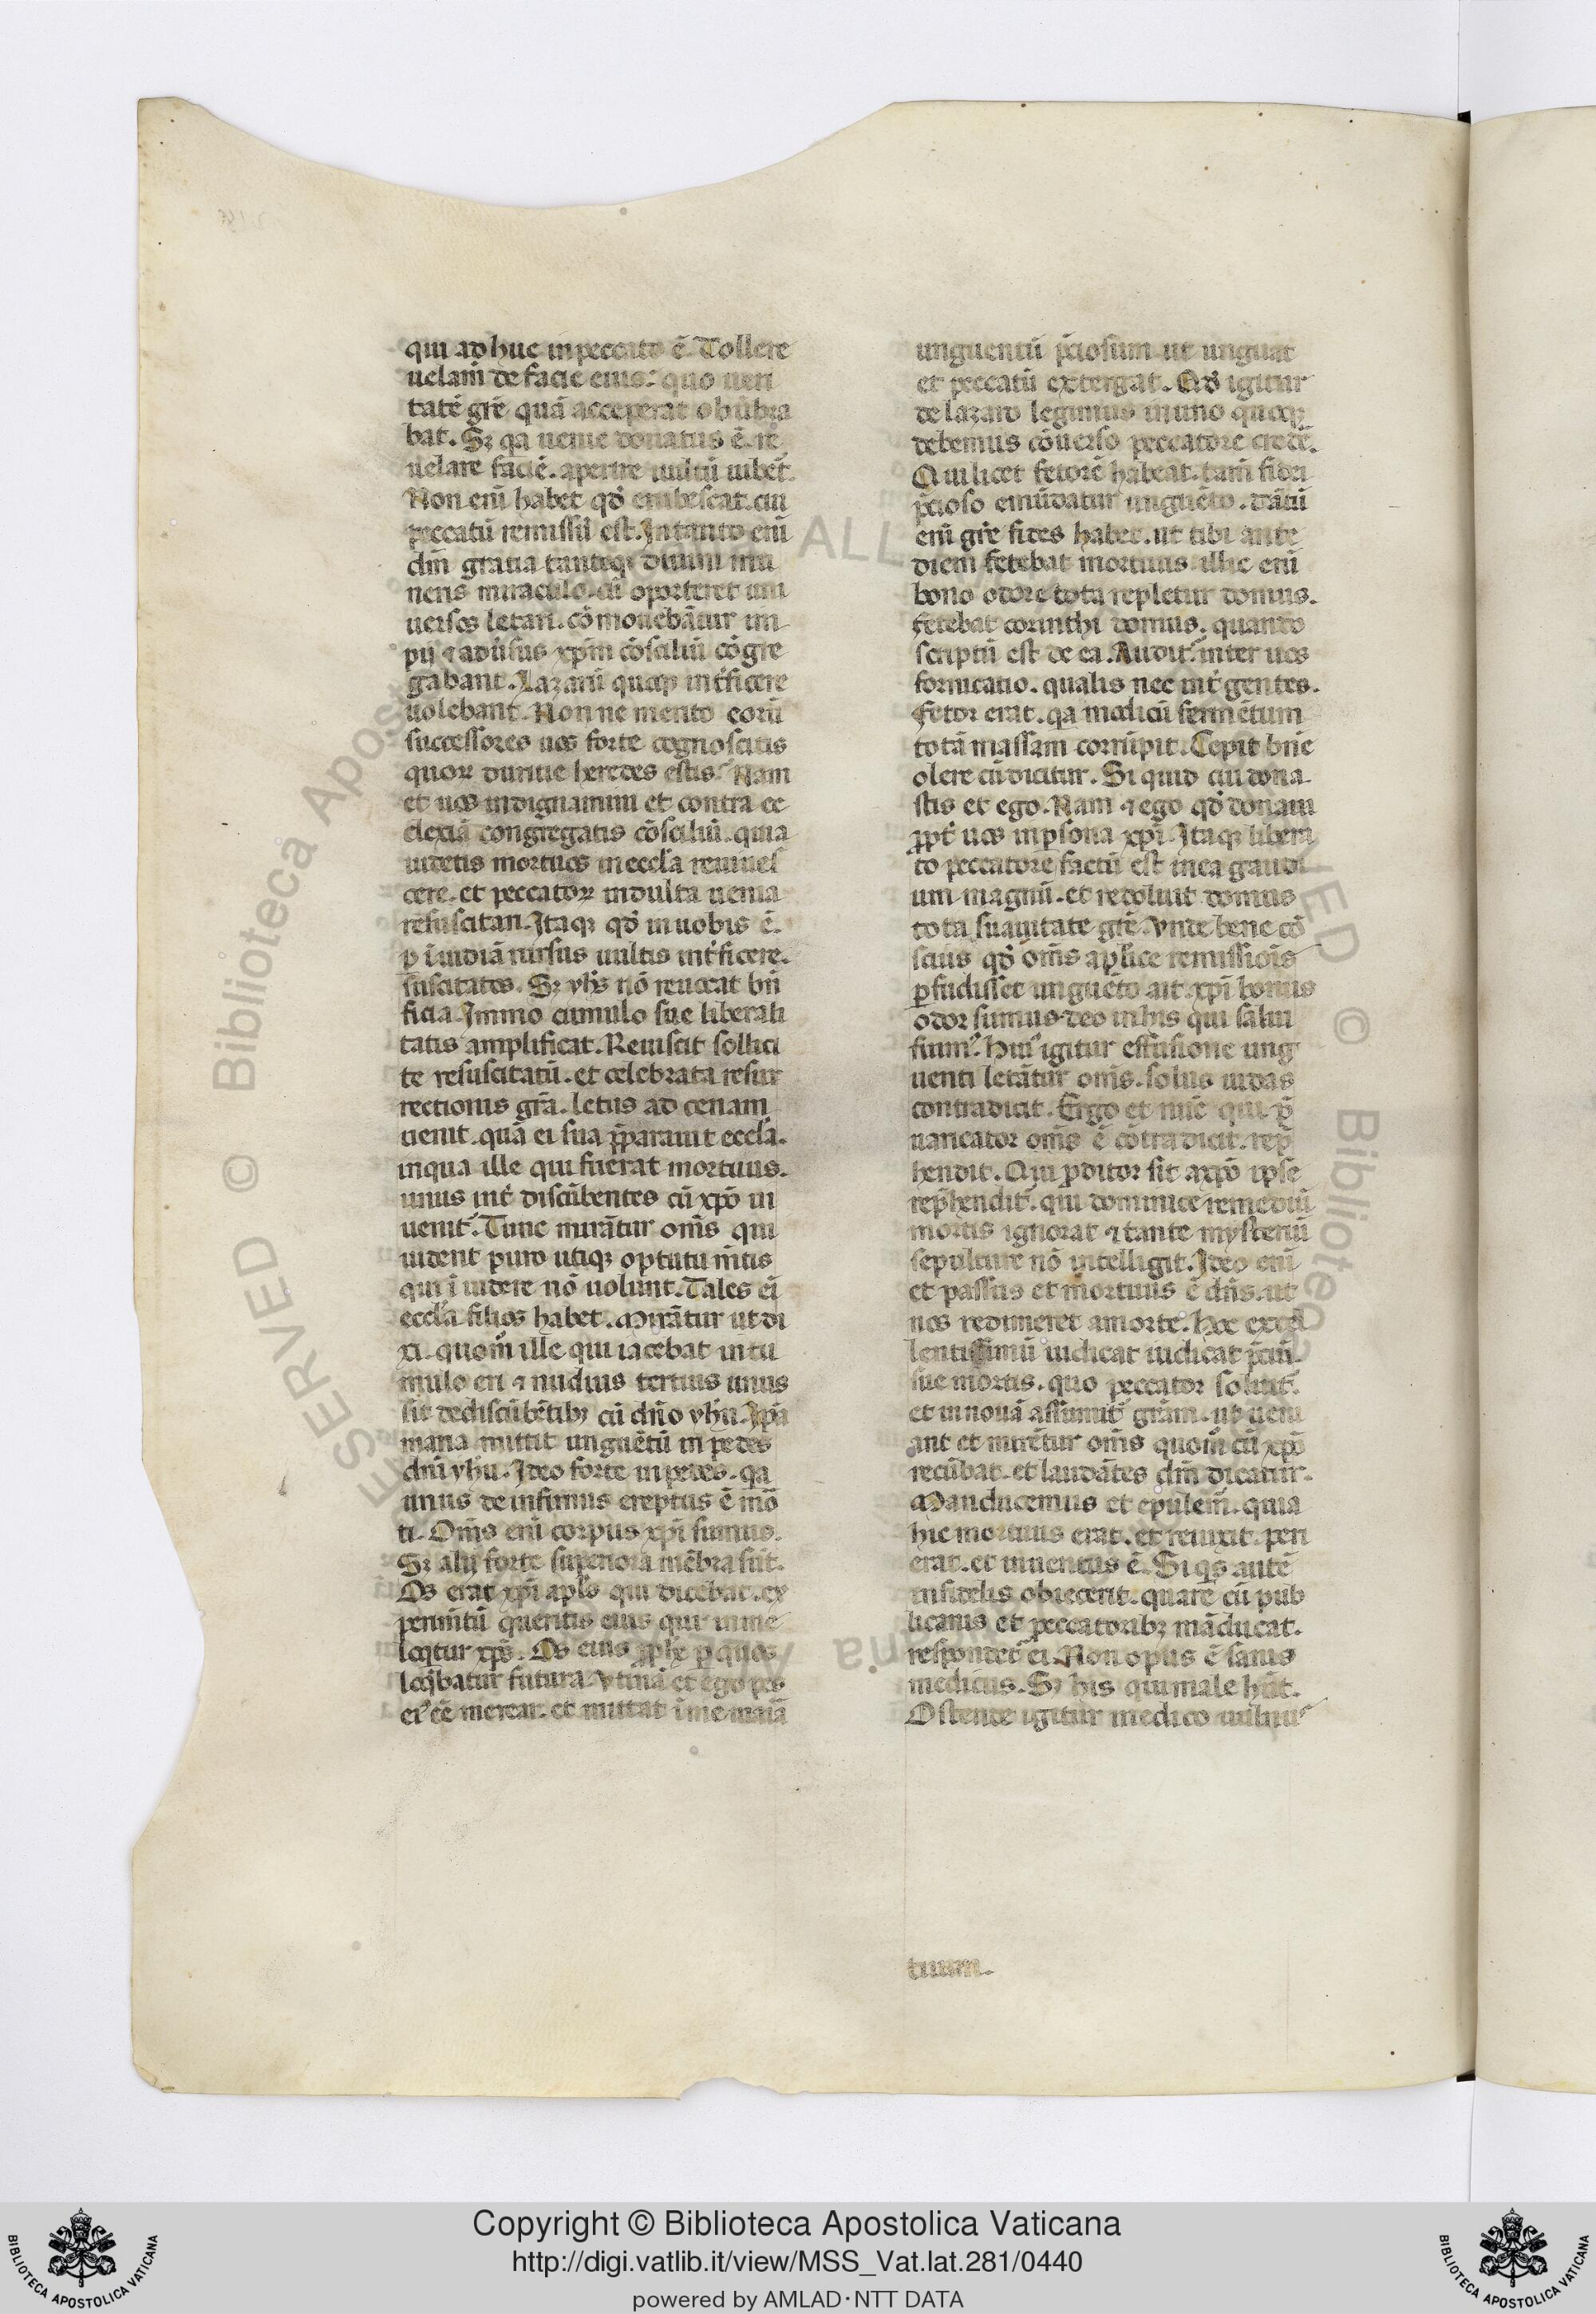 qui adhuc inpeccato ē. Tollere
uelam̄ de facie eius. quo ueri
tatē gr̄e quā acceperat obūbra
bat. Sꝫ qa uenie donatus ē. re
uelare faciē. aperire uultū iubet̄.
Non eni habet qđ erubescat. cui
peccatū remissū est. Intanto enī
dn̄i gratia tantoqꝫ diuini mu
neris miraculo. cū oporteret uni
uersos letari. cōmouebāntur im
pii ⁊ aduersus xp̄m cōsciliū cōgre
gabant. Lazarū quoqꝫ int̄ficere
uolebant. Nonne merito eorū
successores uos forte cognoscitis
quoꝝ duritie heredes estis. Nam
et uos indignamini et contra ec
clexiā congregatis cōsciliū. quia
uidetis mortuos in eccl̄a reuiues
cere. et peccatoꝝ indulta uenia
resuscitari. Itaqꝫ qđ inuobis ē.
p īuidiā rursus uultis int̄ficere.
suscitatos. Sꝫ yh̄s nō reuocat bn̄
ficia. Immo cumulo sue liberali
tatis amplificat. Reuiscit sollici
te resuscitatū. et celebrata resur
rectionis gr̄a. letus ad cenam
uenit. quā ei sua p̄parauit eccl̄a.
inqua ille qui fuerat mortuus.
unus int̄ discūbentes cū xp̄o in
uenit̄. Tunc mirātur om̄s qui
uident puro utiqꝫ optutu m̄tis
qui īuidere nō uolunt. Tales ei
eccl̄a filios habet. Mirātur ut di
xi. quom̄ ille qui iacebat intu
mulo eri ⁊ nudius tertius unus
sit dediscūbētibꝫ cū dn̄o yh̄u. Ip̄a
maria mittit unguētū in pedes
dn̄i yh̄u. Ideo forte inpedes. qa
unus de infimus ereptus ē mō
ti. Om̄s enī corpus xp̄i sumus.
Sꝫ alij forte superiora mēbra sūt.
Os erat xp̄i apl̄s qui dicebat. ex
perimtū queritis eius qui inme
loq̄tur xp̄s. Os eius p̄phe p quos
loq̄batur futura. Vtinā et ego pes
ei' ēē merear. et mittat ī me maīa
unguentū p̄ciosum ut unguat
et peccatū extergat. Qđ igitur
de lazaro legimus inuno quoqꝫ
debemus cōuerso peccatore credē.
Qui licet fetorē habeat. tam̄ fidei
p̄cioso emūdatur unguēto. Tātū
enī gr̄e fides habet. ut ubi ante
diem fetebat mortuus. illic enī
bono odore tota repletur domus.
fetebat corinthi domus. quando
scriptū est de ea. Audit̄ inter uos
fornicatio. qualis nec int̄ gentes.
Fetor erat. qa modicū fermētum
totā massam corrūpit. Cepit bn̄e
olere cū dicitur. Si quid cui dona
stis et ego. Nam ⁊ ego qđ donaui
ꝓpt̄ uos inp̱sona xp̄i. Itaqꝫ libera
to peccatore factū est inea gaudi
um magnū. et redoluit domus
tota suauitate gr̄e. Vnde bene cō
scius qđ om̄s aplice remissiōis
pfudisset unguēto ait. xp̄i bonus
odor sumus deo inhis qui salui
fiunt̄. Hui' igitur effusione ung
uenti letātur om̄s. solus iudas
contradicit. Ergo et nūc qui p̄
uaricator om̄s ē cōtradicit. rep̄
hendit. Qui p̄ditor sit axp̄o ipse
rep̄hendit̄. qui dominice remediū
mortis ignorat ⁊ tante mysteriū
sepulture nō intelligit. Ideo enī
et passus et mortuus ē dn̄s. ut
nos redimeret amorte. Hoc excel
lentissimū iudicat iudicat p̄ciū
sue mortis. quo peccator soluit̄.
et innouā assumit̄ grām. ut ueni
ant et mirētur om̄s quom̄ cū xp̄o
recūbat. et laudātes dm̄ dicātur.
Manducemus et epulem̄. quia
hic mortuus erat. et reuixit. peri
erat. et inuentus ē. Si qs autē
infidelis obiecerit. quare cū pub
licanis et peccatoribꝫ māducat.
respondet̄ ei. Non opus ē sanis
medicus. Sꝫ his qui male hn̄t.
Ostende igitur medico uulnus
tuum.
Copyright © Biblioteca Apostolica Vaticana
http://digi.vatlib.it/view/MSS_Vat.lat.281/0440
powered by AMLAD·NTT DATA